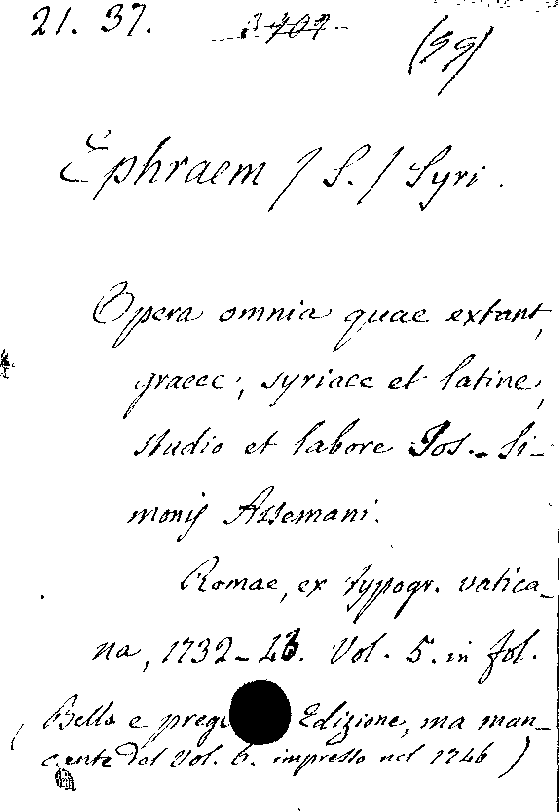 21. 37. (99)
Ephraem / S. / Syri.
Opera omnia quae extant,
graece, syriace et latine,
studio et labore Jos. Si-
monis Assemani.
Romae, ex typogr. vatica-
na, 1732-43. Vol. 5. in fol.
(Bella e preg Edizione, ma man-
cante del Vol. 6. impresso nel 1746)